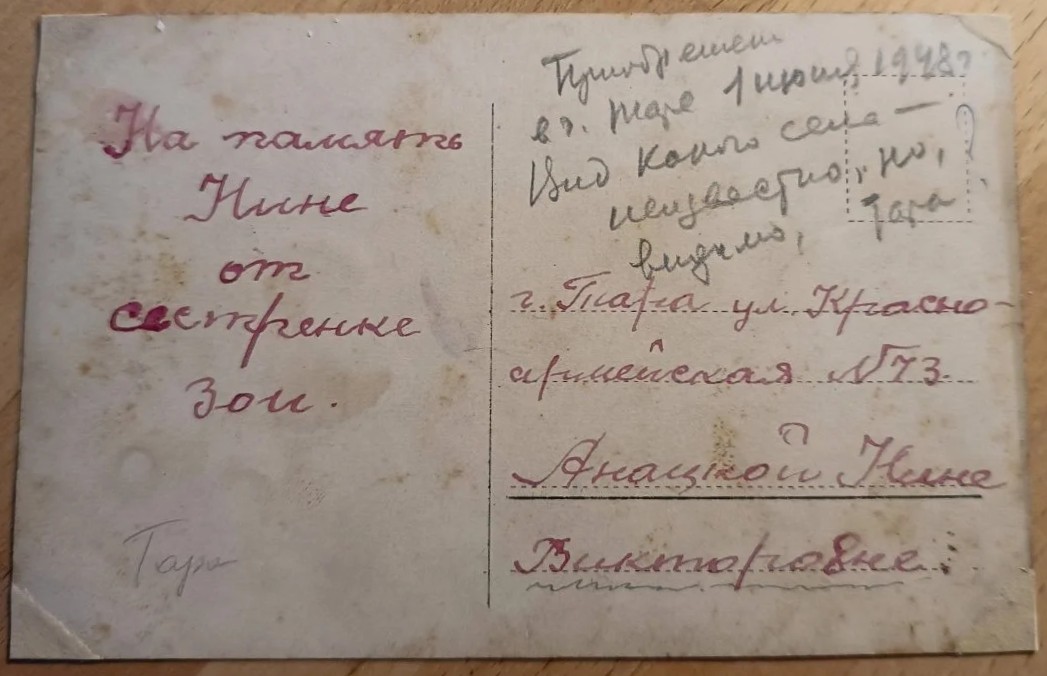 На память
Нине
от
сестренке
Зои.
Тара
Приобретен
в г. Таре 1 июня 1978г
Вид какого села —
неизвестно, но,
видимо, Тара
г. Тара ул. Красно-
армейская N73.
Анацкой Нине
Викторовне.